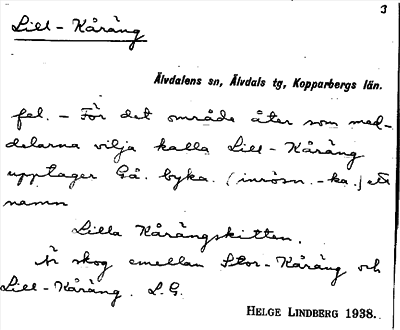 3
Lill-Kåräng
Älvdalens sn, Älvdals tg, Kopparbergs län.
fel. - För det område åter som med-
delarna vilja kalla Lill-Kåräng
upptager Gå. byka. (inrösn.-ka.) ett
namn
Lilla Kårängskitten.
Är skog emellan Stor-Kåräng och
Lill-Kåräng. L.G.
HELGE LINDBERG 1938.